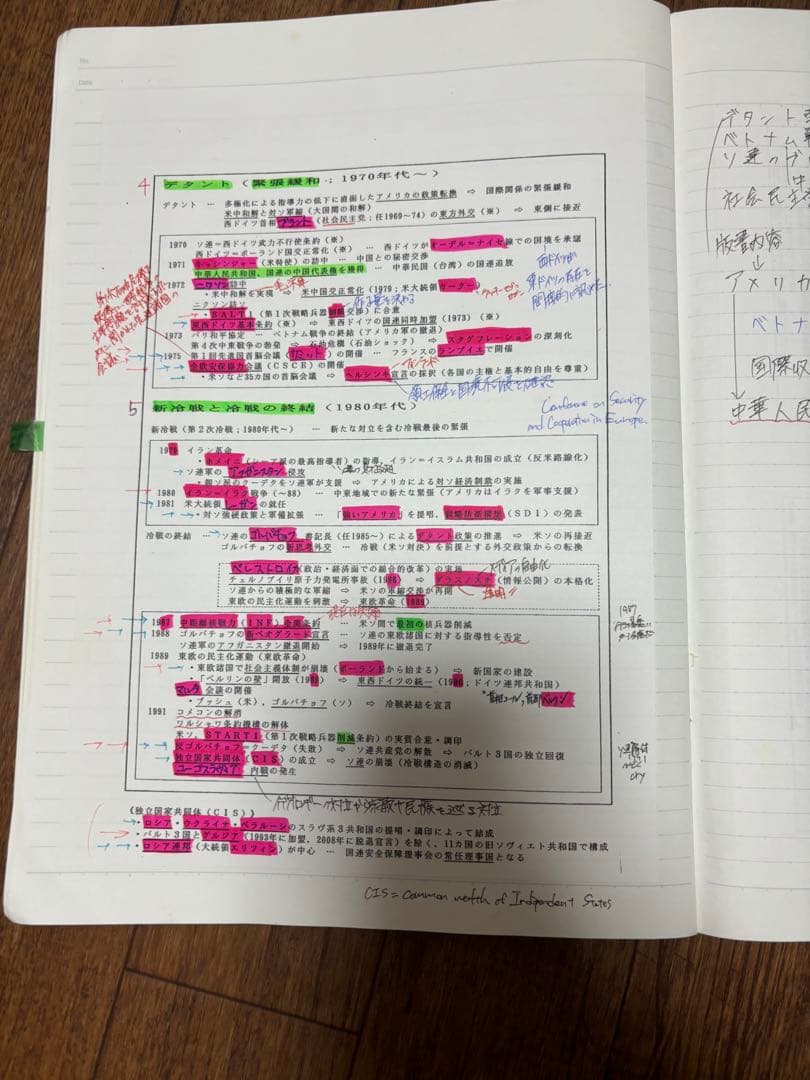 No.
Date
4 デタント（緊張緩和；1970年代～）
デタント … 多極化による指導力の低下に直面したアメリカの政策転換 ⇨ 国際関係の緊張緩和
米中和解と対ソ軍縮（大国間の和解）
西ドイツ首相ブラント（社会民主党；任1969～74）の東方外交（※） ⇨ 東側に接近
1970 ソ連＝西ドイツ武力不行使条約（※）
西ドイツ＝ポーランド国交正常化（※） … 西ドイツがオーデル＝ナイセ線での国境を承認
1971 キッシンジャー（米特使）の訪中 … 中国との秘密交渉
中華人民共和国、国連の中国代表権を獲得 … 中華民国（台湾）の国連追放
1972 ニクソン訪中
・米中和解を実現 ⇨ 米中国交正常化（1979；米大統領カーター）
ニクソン訪ソ
・SALT1（第1次戦略兵器制限交渉）に合意
東西ドイツ基本条約（※） ⇨ 東西ドイツの国連同時加盟（1973）（※）
1973 パリ和平協定 … ベトナム戦争の終結（アメリカ軍の撤退）
第4次中東戦争の勃発 ⇨ 石油危機（石油ショック） ⇨ スタグフレーションの深刻化
1975 第1回先進国首脳会議（サミット）の開催 … フランスのランブイエで開催
全欧安保協力会議（CSCE）の開催
・米ソなど35カ国の首脳会議 ⇨ ヘルシンキ宣言の採択（各国の主権と基本的自由を尊重）
Conference on Security
and Cooperation in Europe.
5 新冷戦と冷戦の終結（1980年代）
新冷戦（第2次冷戦；1980年代～） … 新たな対立を含む冷戦最後の緊張
1979 イラン革命
・ホメイニ（シーア派の最高指導者）の指導，イラン＝イスラム共和国の成立（反米路線化）
ソ連軍のアフガニスタン侵攻
・親ソ派のクーデタをソ連軍が支援 ⇨ アメリカによる対ソ経済制裁の実施
1980 イラン＝イラク戦争（～88） … 中東地域での新たな緊張（アメリカはイラクを軍事支援）
1981 米大統領レーガンの就任
・対ソ強硬政策と軍備拡張 … 「強いアメリカ」を提唱，戦略防衛構想（SDI）の発表
冷戦の終結 … ソ連のゴルバチョフ書記長（任1985～）によるデタント政策の推進 ⇨ 米ソの再接近
ゴルバチョフの新思考外交 … 冷戦（米ソ対決）を前提とする外交政策からの転換
ペレストロイカ（政治・経済面での総合的改革）の実施
チェルノブイリ原子力発電所事故（1986） ⇨ グラスノスチ（情報公開）の本格化
ソ連からの積極的な軍縮 ⇨ 米ソの軍縮交渉が再開
東欧の民主化運動を刺激 ⇨ 東欧革命（1989）
1987 中距離核戦力（INF）全廃条約 … 米ソ間で最初の核兵器削減
1988 ゴルバチョフの新ベオグラード宣言 … ソ連の東欧諸国に対する指導性を否定
ソ連軍のアフガニスタン撤退開始 ⇨ 1989年に撤退完了
1989 東欧の民主化運動（東欧革命）
・東欧諸国で社会主義体制が崩壊（ポーランドから始まる） ⇨ 新国家の建設
・「ベルリンの壁」開放（1989） ⇨ 東西ドイツの統一（1990；ドイツ連邦共和国）
マルタ会談の開催
・ブッシュ（米），ゴルバチョフ（ソ） ⇨ 冷戦終結を宣言
1991 コメコンの解消
ワルシャワ条約機構の解体
米ソ，START1（第1次戦略兵器削減条約）の実質合意・調印
反ゴルバチョフ＝クーデタ（失敗） ⇨ ソ連共産党の解散 ⇨ バルト3国の独立回復
独立国家共同体（CIS）の成立 ⇨ ソ連の崩壊（冷戦構造の消滅）
ユーゴスラヴィア内戦の発生
《独立国家共同体（CIS）》
・ロシア・ウクライナ・ベラルーシのスラヴ系3共和国の提唱・調印によって結成
・バルト3国とグルジア（1993年に加盟，2008年に脱退宣言）を除く，11カ国の旧ソヴィエト共和国で構成
・ロシア連邦（大統領エリツィン）が中心 … 国連安全保障理事会の常任理事国となる
CIS = Common wealth of Independent States
デタント
ベトナム
ソ連の
中
社会民主
版書内容
↓
アメリカ
ベトナ
国際収
中華人民